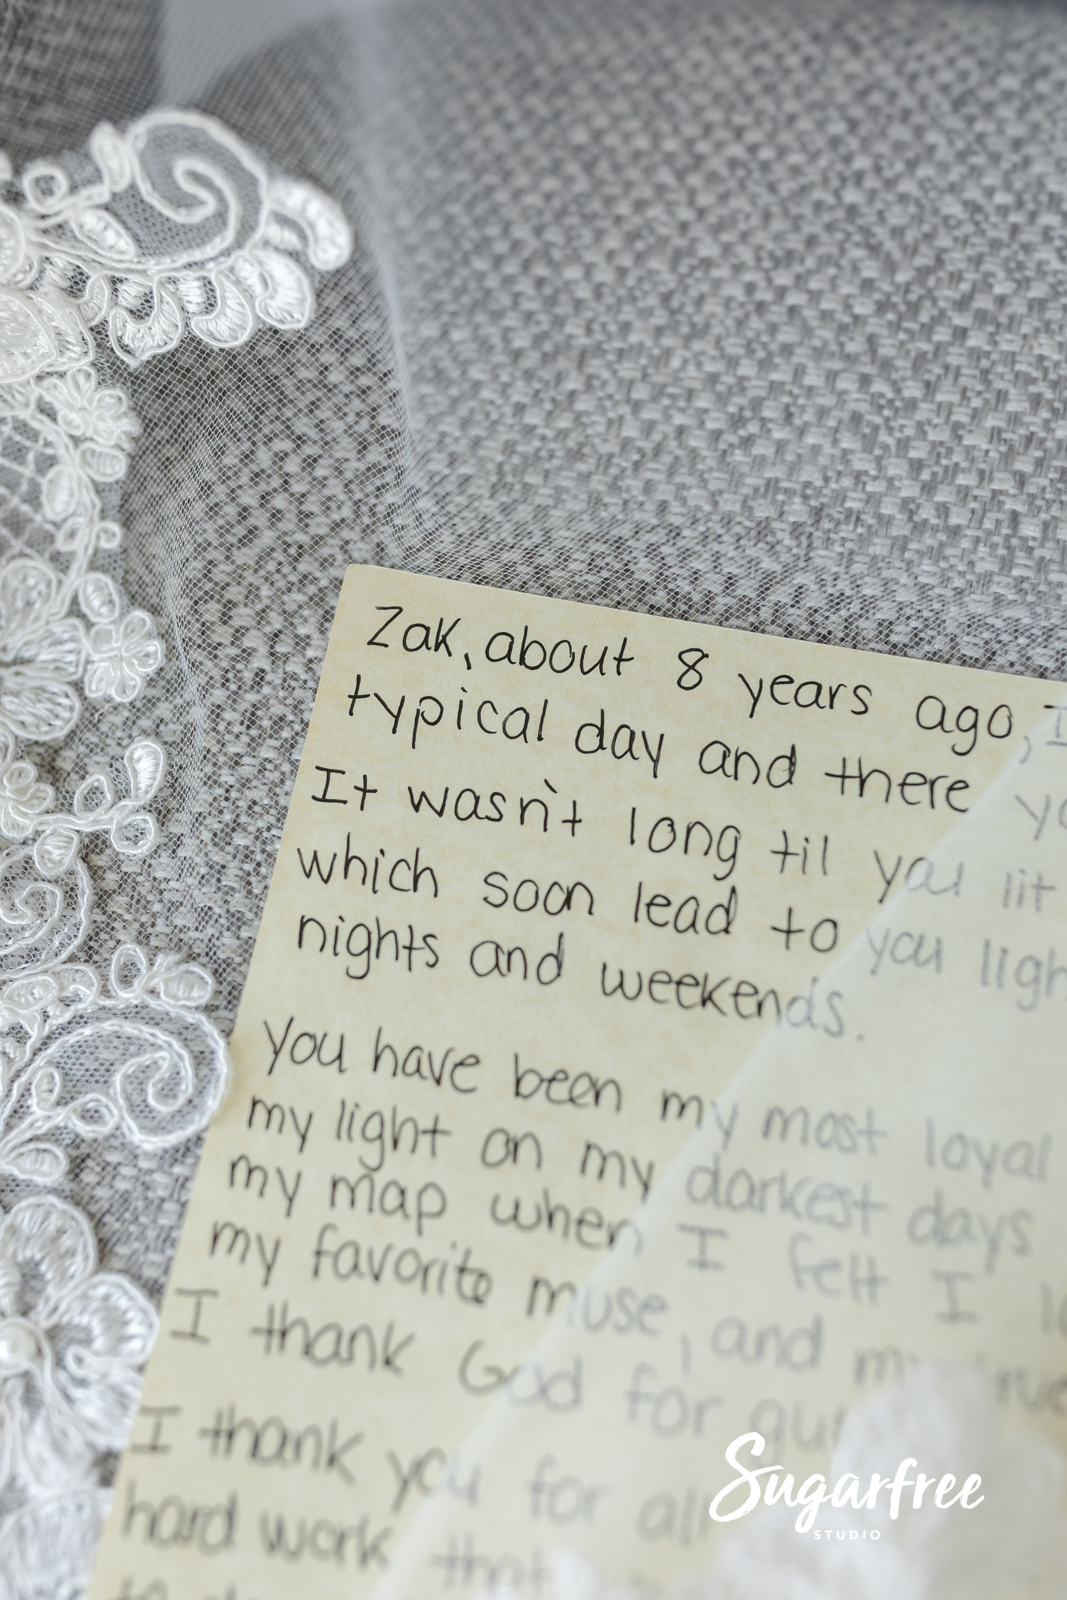 Zak, about 8 years ago, I
typical day and there
It wasn't long til you lit
which soon lead to you
nights and weekends.
You have been my most loyal
my light on my darkest days
my map when I felt I
my favorite muse, and my
I thank God for
I thank you for all
hard work that
Sugarfree
STUDIO